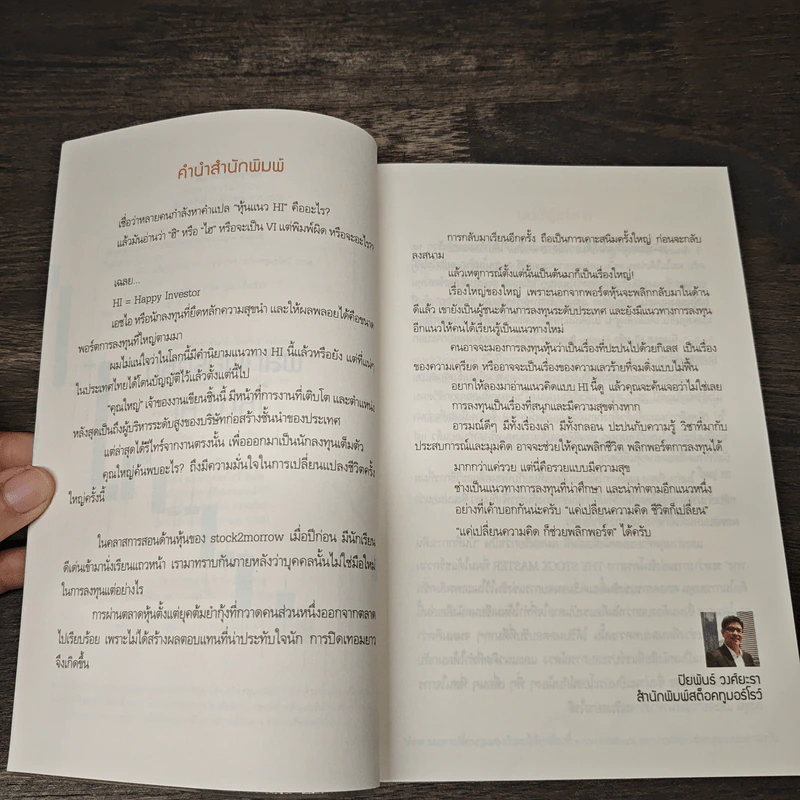 คำนำสำนักพิมพ์
เชื่อว่าหลายคนกำลังหาคำแปล "หุ้นแนว HI" คืออะไร?
แล้วมันอ่านว่า "ฮิ" หรือ "ไฮ" หรือจะเป็น VI แต่พิมพ์ผิด หรือจะอะไร?
เฉลย...
HI = Happy Investor
เอชไอ หรือนักลงทุนที่ยึดหลักความสุขนำ และให้ผลพลอยได้คือขนาด
พอร์ตการลงทุนที่ใหญ่ตามมา
ผมไม่แน่ใจว่าในโลกนี้มีคำนิยามแนวทาง HI นี้แล้วหรือยัง แต่ที่แน่ๆ
ในประเทศไทยได้โดนบัญญัติไว้แล้วตั้งแต่นี้ไป
"คุณใหญ่" เจ้าของงานเขียนชิ้นนี้ มีหน้าที่การงานที่เติบโต และตำแหน่ง
หลังสุดเป็นถึงผู้บริหารระดับสูงของบริษัทก่อสร้างชั้นนำของประเทศ
แต่ล่าสุดได้รีไทร์จากงานตรงนั้น เพื่อออกมาเป็นนักลงทุนเต็มตัว
คุณใหญ่ค้นพบอะไร? ถึงมีความมั่นใจในการเปลี่ยนแปลงชีวิตครั้ง
ใหญ่ครั้งนี้
ในคลาสการสอนด้านหุ้นของ stock2morrow เมื่อปีก่อน มีนักเรียน
ดีเด่นเข้ามานั่งเรียนแถวหน้า เรามาทราบกันภายหลังว่าบุคคลนั้นไม่ใช่มือใหม่
ในการลงทุนแต่อย่างไร
การผ่านตลาดหุ้นตั้งแต่ยุคต้มยำกุ้งที่กวาดคนส่วนหนึ่งออกจากตลาด
ไปเรียบร้อย เพราะไม่ได้สร้างผลตอบแทนที่น่าประทับใจนัก การปิดเทอมยาว
จึงเกิดขึ้น
การกลับมาเรียนอีกครั้ง ถือเป็นการเคาะสนิมครั้งใหญ่ ก่อนจะกลับ
ลงสนาม
แล้วเหตุการณ์ตั้งแต่นั้นเป็นต้นมาก็เป็นเรื่องใหญ่!
เรื่องใหญ่ของใหญ่ เพราะนอกจากพอร์ตหุ้นจะพลิกกลับมาในด้าน
ดีแล้ว เขายังเป็นผู้ชนะด้านการลงทุนระดับประเทศ และยังมีแนวทางการลงทุน
อีกแนวให้คนได้เรียนรู้เป็นแนวทางใหม่
คนอาจจะมองการลงทุนหุ้นว่าเป็นเรื่องที่ปะปนไปด้วยกิเลส เป็นเรื่อง
ของความเครียด หรืออาจจะเป็นเรื่องของความเลวร้ายที่จมดิ่งแบบไม่ฟื้น
อยากให้ลองมาอ่านแนวคิดแบบ HI นี้ดู แล้วคุณจะค้นเจอว่าไม่ใช่เลย
การลงทุนเป็นเรื่องที่สนุกและมีความสุขต่างหาก
อารมณ์ดีๆ มีทั้งเรื่องเล่า มีทั้งกลอน ปะปนกับความรู้ วิชาที่มากับ
ประสบการณ์และมุมคิด อาจจะช่วยให้คุณพลิกชีวิต พลิกพอร์ตการลงทุนได้
มากกว่าแค่รวย แต่นี่คือรวยแบบมีความสุข
ช่างเป็นแนวทางการลงทุนที่น่าศึกษา และน่าทำตามอีกแนวหนึ่ง
อย่างที่เค้าบอกกันน่ะครับ "แค่เปลี่ยนความคิด ชีวิตก็เปลี่ยน"
"แค่เปลี่ยนความคิด ก็ช่วยพลิกพอร์ต" ได้ครับ
ปิยพันธ์ วงศ์ยะรา
สำนักพิมพ์สต็อคทูมอร์โรว์